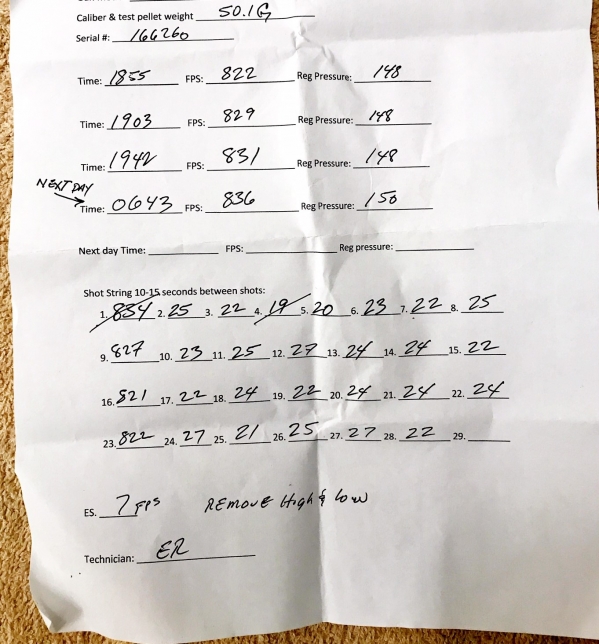 Caliber & test pellet weight 50.1G
Serial #: 166260
Time: 1855 FPS: 822 Reg Pressure: 148
Time: 1903 FPS: 829 Reg Pressure: 148
Time: 1942 FPS: 831 Reg Pressure: 148
NEXT DAY
Time: 0643 FPS: 836 Reg Pressure: 150
Next day Time: FPS: Reg pressure:
Shot String 10-15 seconds between shots:
1. 834 2. 25 3. 22 4. 19 5. 20 6. 23 7. 22 8. 25
9. 827 10. 23 11. 25 12. 27 13. 24 14. 24 15. 22
16. 821 17. 22 18. 24 19. 22 20. 24 21. 24 22. 24
23. 822 24. 27 25. 21 26. 25 27. 27 28. 22 29.
ES. 7 FPS REMOVE High & low
Technician: ER